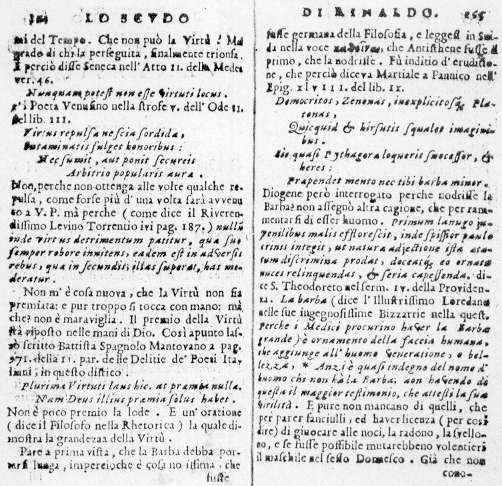 LO SCVDO
mi del Tempo. Che non può la Virtù? Mal
grado di chi la perseguita, finalmente trionfa.
E perciò disse Seneca nell'Atto II. della Medea
ver. 46.
Nunquam potest non esse Virtuti locus.
Poeta Venusino nella strofe v. dell'Ode II.
del lib. III.
Virtus repulsa nescia sordida,
Intaminatis fulget honoribus:
Nec sumit, aut ponit secureis
Arbitrio popularis aura.
Non, perche non ottenga alle volte qualche re-
pulsa, come forse più d'una volta sarà avvenu
to a V. P. mà perche (come dice il Riveren-
dissimo Levino Torrentio ivi pag. 187.) nullū
inde virtus detrimentum patitur, qua sua
semper robore innitens, eadem est in adversis
rebus, qua in secundis; illas superat, has mo-
deratur.
Non m'è cosa nuova, che la Virtù non sia
premiata: e pur troppo si tocca con mano: mà
che? non è maraviglia. Il premio della Virtù
stà riposto nelle mani di Dio. Così apunto las-
sò scritto Battista Spagnolo Mantovano a pag.
971. della II. par. de lle Delitie de' Poesi Ita-
liani, in questo distico.
Plurima Virtuti laus hic, at pramia nulla.
Nam Deus illius pramia solus habet.
Non è poco premio la lode. E un'oratione
(dice il Filosofo nella Rhetorica) la quale di-
mostra la grandezza della Virtù.
Pare a prima vista, che la Barba debba por-
si lunga, impercioche è cosa no issima, che
fusse
DI RINALDO. 265
fusse germana della Filosofia, e leggesi in Sui-
da nella voce che Antisthene fusse il
primo, che la nodrisse. Fù inditio d'eruditio-
ne, che perciò diceva Martiale a Pannico nell'
Epig. xlviii. del lib. ix.
Democritos, Zenonas, inexplicitosq; Pla-
tonas,
Quicquid & hirsutis squalet imagini-
bus.
Sic quasi Pythagora loqueris successor, &
heres:
Prapendet mento nec tibi barba minor.
Diogene però interrogato perche nodrisse la
Barba non assegnò altra cagione, che per ram-
mentarsi di esser huomo. Primum lanugo ju-
venilibus malis efflorescit, inde spissior paula-
trinis integit, ut natura adjectione ista aeta-
tum discrimina prodat, doceatq; eo ornatu
nuces relinquendas, & seria capessenda. di-
ce S. Theodoreto nel serm. iv. della Providen-
za. La barba (dice l'Illustrissimo Loredano
nelle sue ingegnosissime Bizzarrie nella quest.
perche i Medici procurino haver la Barba
grande) è ornamento della faccia humana,
che aggiunge all'huomo Veneratione, e bel-
lezza, * Anzi è quasi indegno del nome d'
huomo chi non hà la Barba, non havendo di
questa il maggior testimonio, che attesti la sua
virilità. E pure non mancano di quelli, che
per parer fanciulli, ed haver licenza (per così
dire) di giuocare alle noci, la radono, la svello-
no, e se fusse possibile mutarebbeno volentieri
il maschile nel sesso Domesco. Già che non
cono-